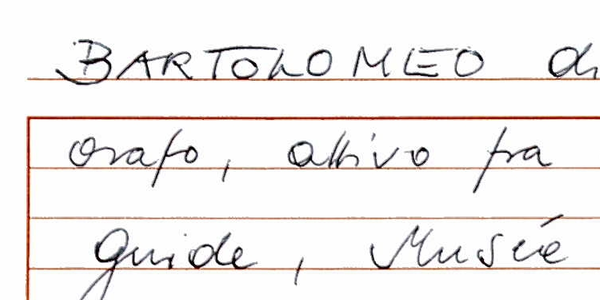 BARTOLOMEO di
orafo, attivo fra
Guide, Musée